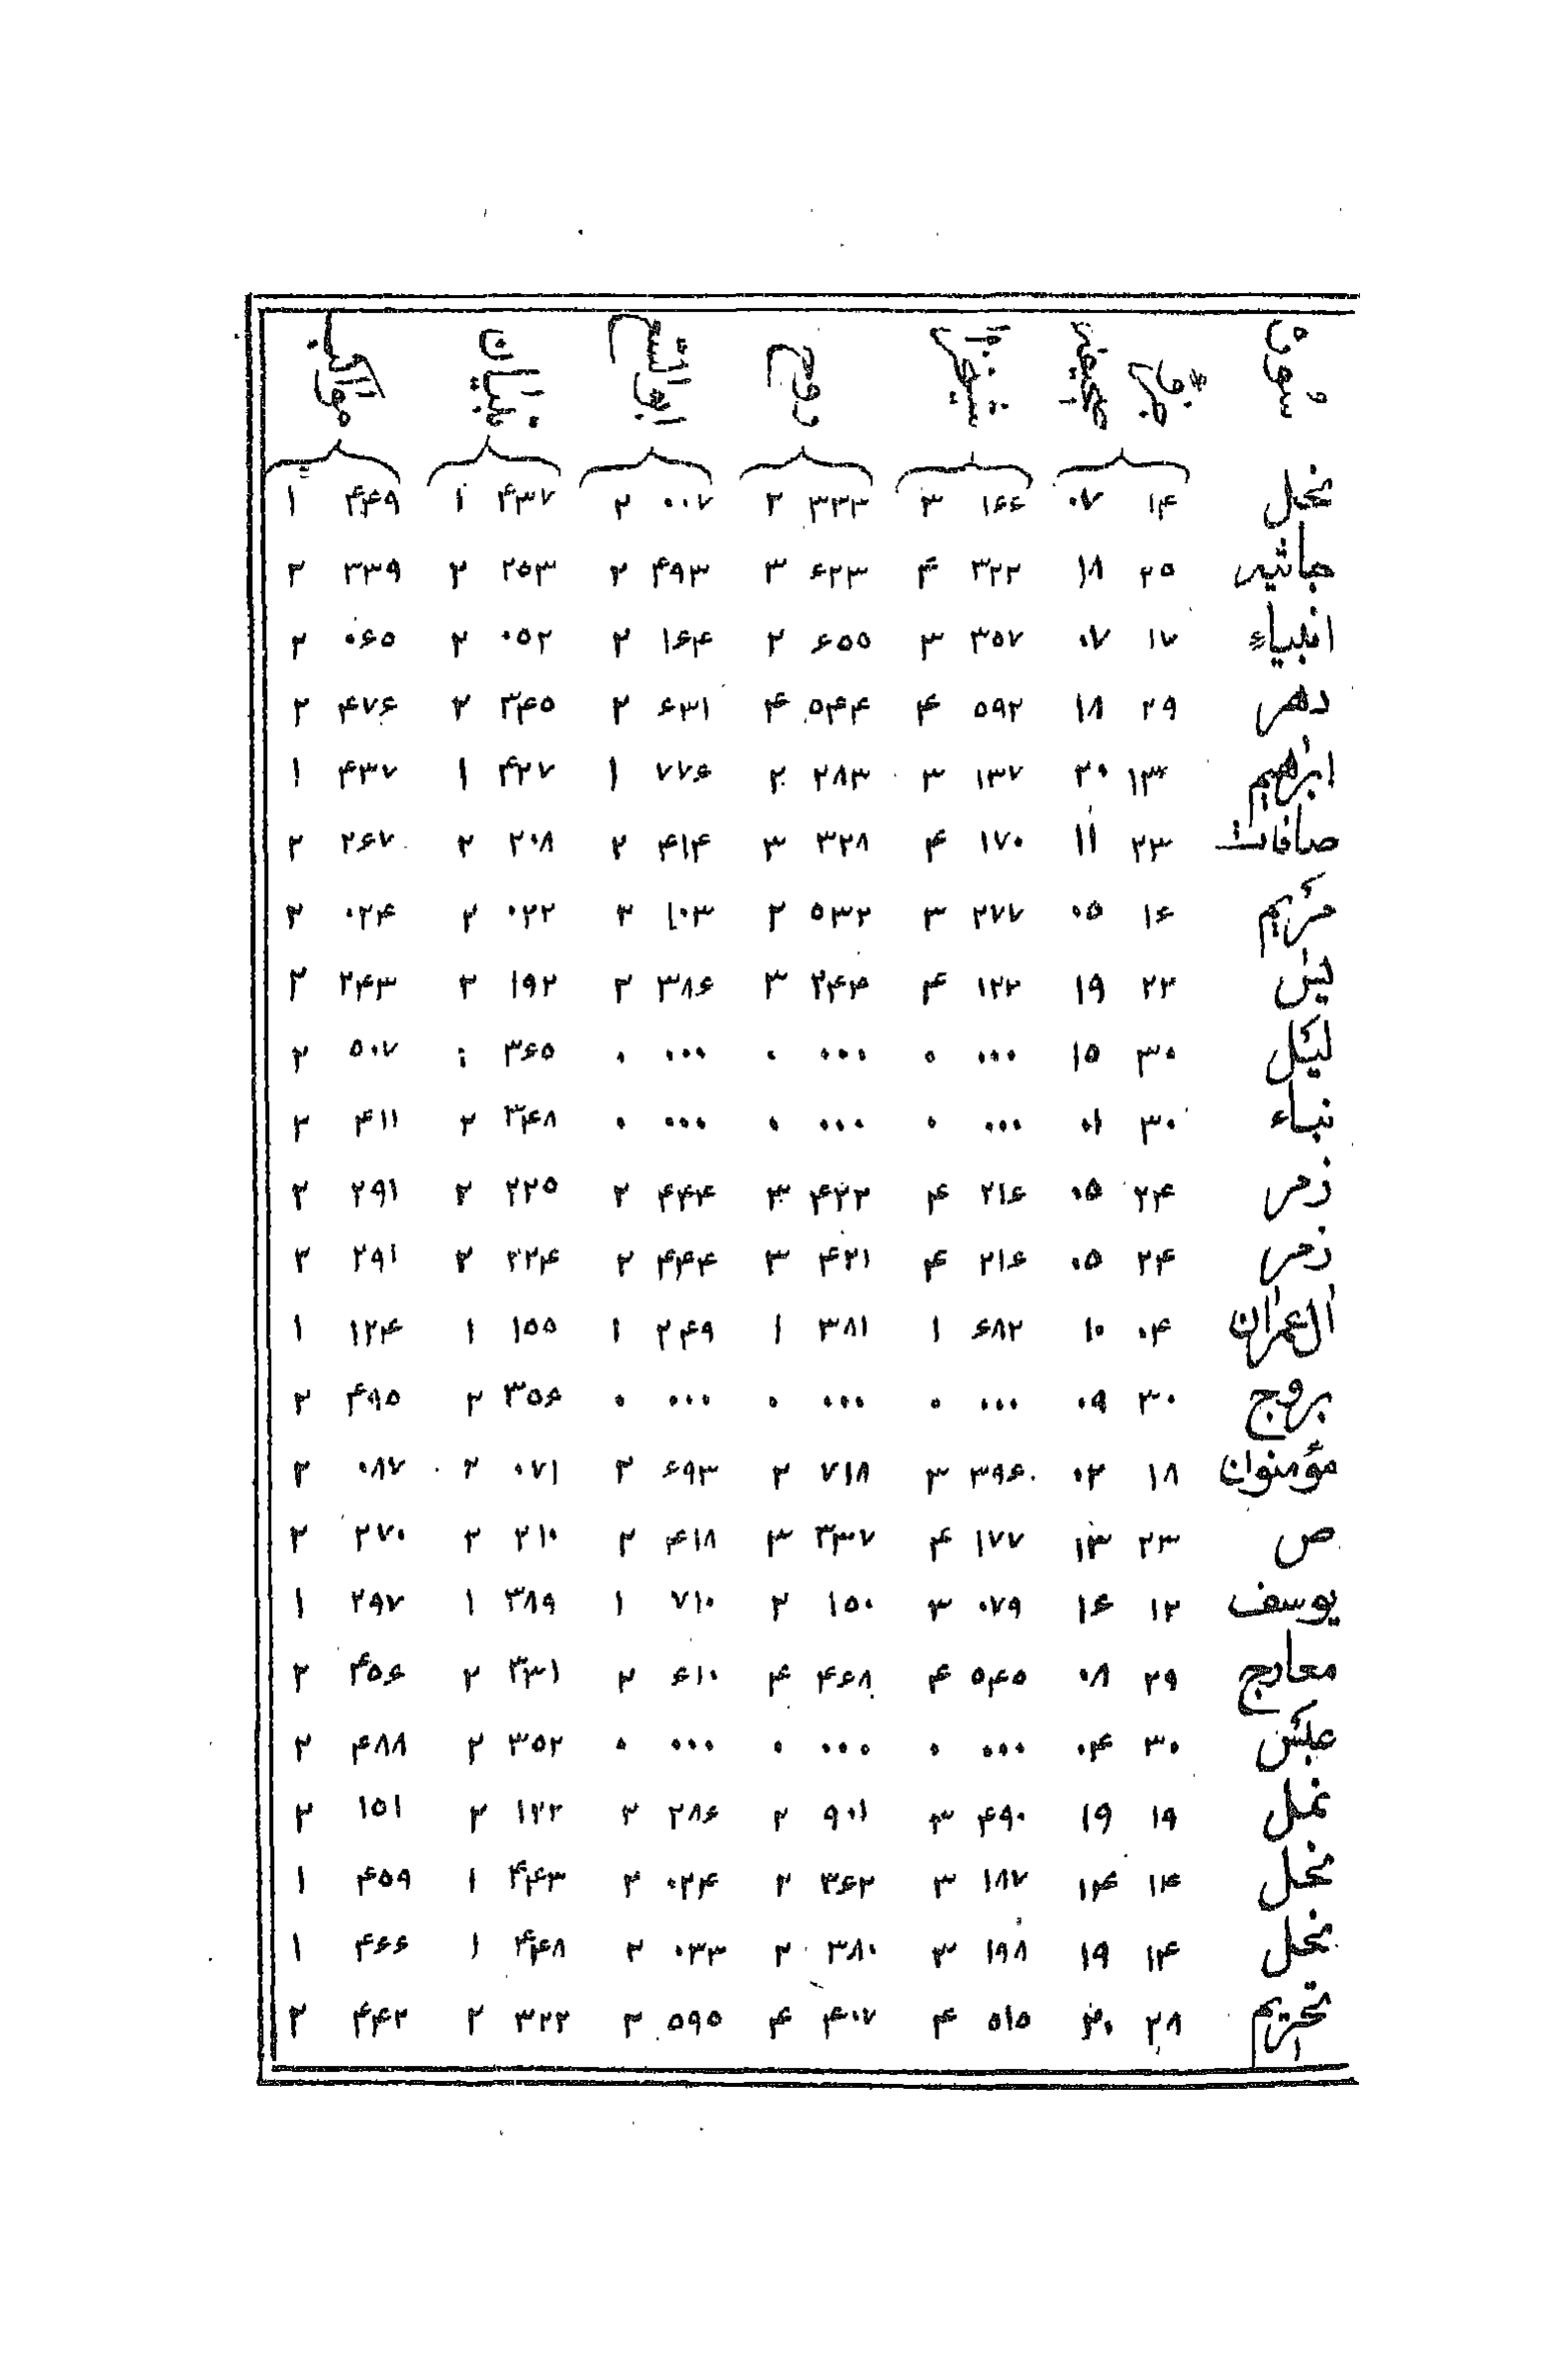 سوره جزء صحیفه شیخ زاده روح ابو السعود تبیان مواکب
نحل ۱۴ ۰۷ ۱۶۶ ۳ ۳۳۳ ۲ ۰۰۷ ۲ ۴۳۷ ۱ ۴۴۹ ۱
جاثیه ۲۵ ۱۸ ۳۲۲ ۴ ۶۲۳ ۳ ۴۹۳ ۲ ۲۵۳ ۲ ۳۳۹ ۲
انبیاء ۱۷ ۰۷ ۳۵۷ ۳ ۶۵۵ ۲ ۱۶۴ ۲ ۰۵۲ ۲ ۰۶۵ ۲
دهر ۲۹ ۱۸ ۵۹۲ ۴ ۵۴۴ ۴ ۶۳۱ ۲ ۳۴۵ ۲ ۴۷۶ ۲
ابرٰهیم ۱۳ ۲۰ ۱۳۷ ۳ ۲۸۳ ۲ ۷۷۶ ۱ ۴۲۷ ۱ ۴۳۷ ۱
صافات ۲۳ ۱۱ ۱۷۰ ۴ ۳۲۸ ۳ ۴۱۴ ۲ ۲۰۸ ۲ ۲۶۷ ۲
مریم ۱۶ ۰۵ ۲۷۷ ۳ ۵۳۲ ۲ ۱۰۳ ۲ ۰۲۲ ۲ ۰۲۴ ۲
یٰس ۲۲ ۱۹ ۱۲۲ ۴ ۲۴۴ ۳ ۳۸۶ ۲ ۱۹۲ ۲ ۲۴۳ ۲
لیل ۳۰ ۱۵ ۰۰۰ ۰ ۰۰۰ ۰ ۰۰۰ ۰ ۳۶۵ ۵۰۷ ۲
نباء ۳۰ ۰۱ ۰۰۰ ۰ ۰۰۰ ۰ ۰۰۰ ۰ ۳۴۸ ۲ ۴۱۱ ۲
زمر ۲۴ ۰۵ ۲۱۶ ۴ ۴۲۲ ۳ ۴۴۴ ۲ ۲۲۵ ۲ ۲۹۱ ۲
زمر ۲۴ ۰۵ ۲۱۶ ۴ ۴۲۱ ۳ ۴۴۴ ۲ ۲۲۴ ۲ ۲۹۱ ۲
اٰل عمرٰان ۰۴ ۱۰ ۶۸۲ ۱ ۳۸۱ ۱ ۲۴۹ ۱ ۱۵۵ ۱ ۱۲۴ ۱
بروج ۳۰ ۰۹ ۰۰۰ ۰ ۰۰۰ ۰ ۰۰۰ ۰ ۳۵۶ ۲ ۴۹۵ ۲
مؤمنوان ۱۸ ۰۲ ۳۹۶ ۳ ۷۱۸ ۲ ۶۹۳ ۲ ۰۷۱ ۲ ۰۸۷ ۲
ص ۲۳ ۱۳ ۱۷۷ ۴ ۳۳۷ ۳ ۴۱۸ ۲ ۲۱۰ ۲ ۲۷۰ ۲
یوسف ۱۲ ۱۶ ۰۷۹ ۳ ۱۵۰ ۲ ۷۱۰ ۱ ۳۸۹ ۱ ۲۹۷ ۱
معارج ۲۹ ۰۸ ۵۴۵ ۴ ۴۶۸ ۴ ۶۱۰ ۲ ۳۳۱ ۲ ۴۵۶ ۲
عبس ۳۰ ۰۴ ۰۰۰ ۰ ۰۰۰ ۰ ۰۰۰ ۰ ۳۵۲ ۲ ۴۸۸ ۲
نمل ۱۹ ۱۹ ۴۹۰ ۳ ۹۰۱ ۲ ۲۸۶ ۲ ۱۲۲ ۲ ۱۵۱ ۲
نحل ۱۴ ۱۴ ۱۸۷ ۳ ۳۶۲ ۲ ۰۲۴ ۲ ۴۴۳ ۱ ۴۵۹ ۱
نحل ۱۴ ۱۹ ۱۹۸ ۳ ۳۸۰ ۲ ۰۳۳ ۲ ۴۴۸ ۱ ۴۶۶ ۱
تحریم ۲۸ ۲۰ ۵۱۵ ۴ ۴۰۷ ۴ ۵۹۵ ۲ ۳۲۲ ۲ ۴۴۲ ۲